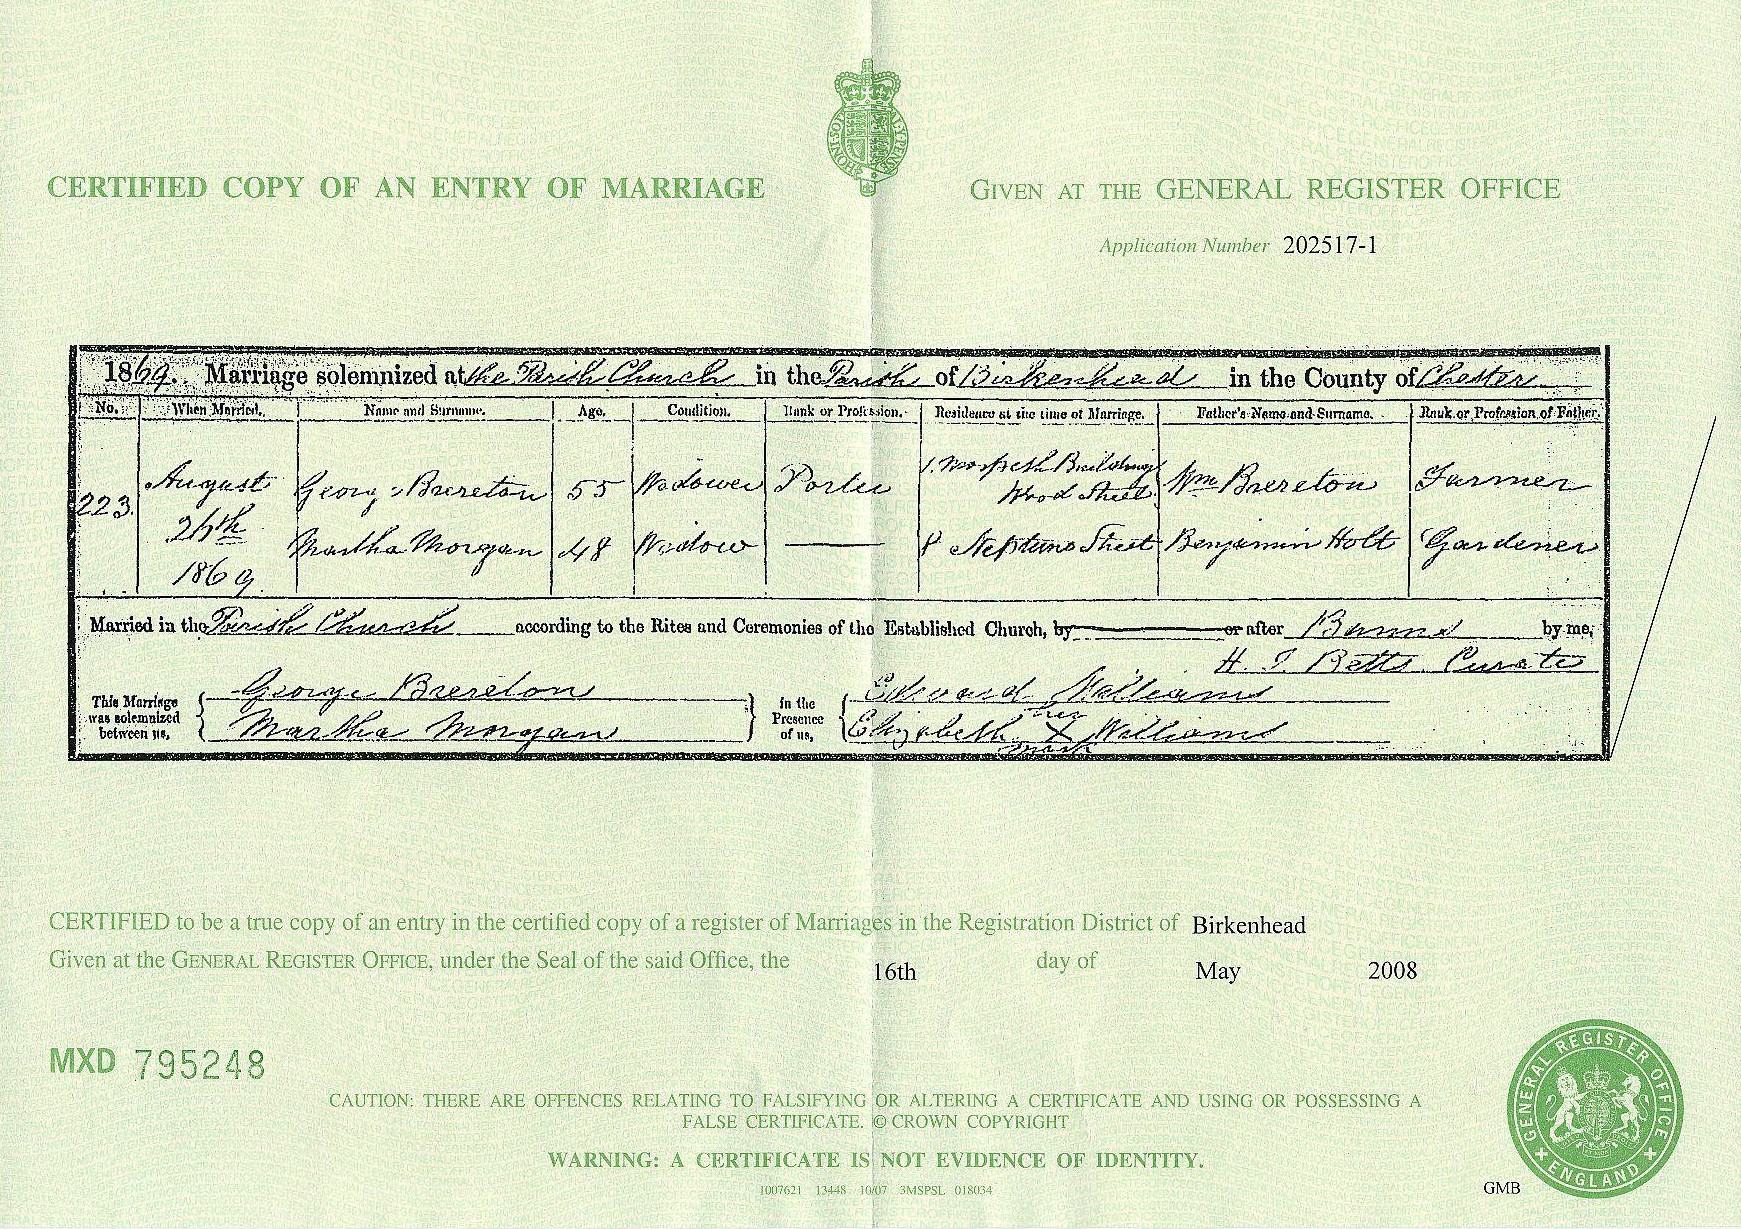 CERTIFIED COPY OF AN ENTRY OF MARRIAGE
GIVEN AT THE GENERAL REGISTER OFFICE
Application Number 202517-1
1869. Marriage solemnized at the Parish Church in the Parish of Birkenhead in the County of Chester
No. When Married. Name and Surname. Age. Condition. Rank or Profession. Residence at the time of Marriage. Father's Name and Surname. Rank or Profession of Father.
223 August 1869
George Brereton 55 Widower Porter 1. Morpeth Buildings Wood Street Wm Brereton Farmer
Martha Morgan 48 Widow 8 Neptune Street Benjamin Holt Gardener
Married in the Parish Church according to the Rites and Ceremonies of the Established Church, by or after Banns by me,
H. J. Betts Curate
This Marriage was solemnized between us, George Brereton Martha Morgan
In the Presence of us, Edward Williams Elizabeth her X mark Williams
CERTIFIED to be a true copy of an entry in the certified copy of a register of Marriages in the Registration District of Birkenhead
Given at the GENERAL REGISTER OFFICE, under the Seal of the said Office, the 16th day of May 2008
MXD 795248
CAUTION: THERE ARE OFFENCES RELATING TO FALSIFYING OR ALTERING A CERTIFICATE AND USING OR POSSESSING A
FALSE CERTIFICATE. © CROWN COPYRIGHT
WARNING: A CERTIFICATE IS NOT EVIDENCE OF IDENTITY.
1007621 13448 10/07 3MSPSL 018034
GMB
GENERAL REGISTER OFFICE
ENGLAND